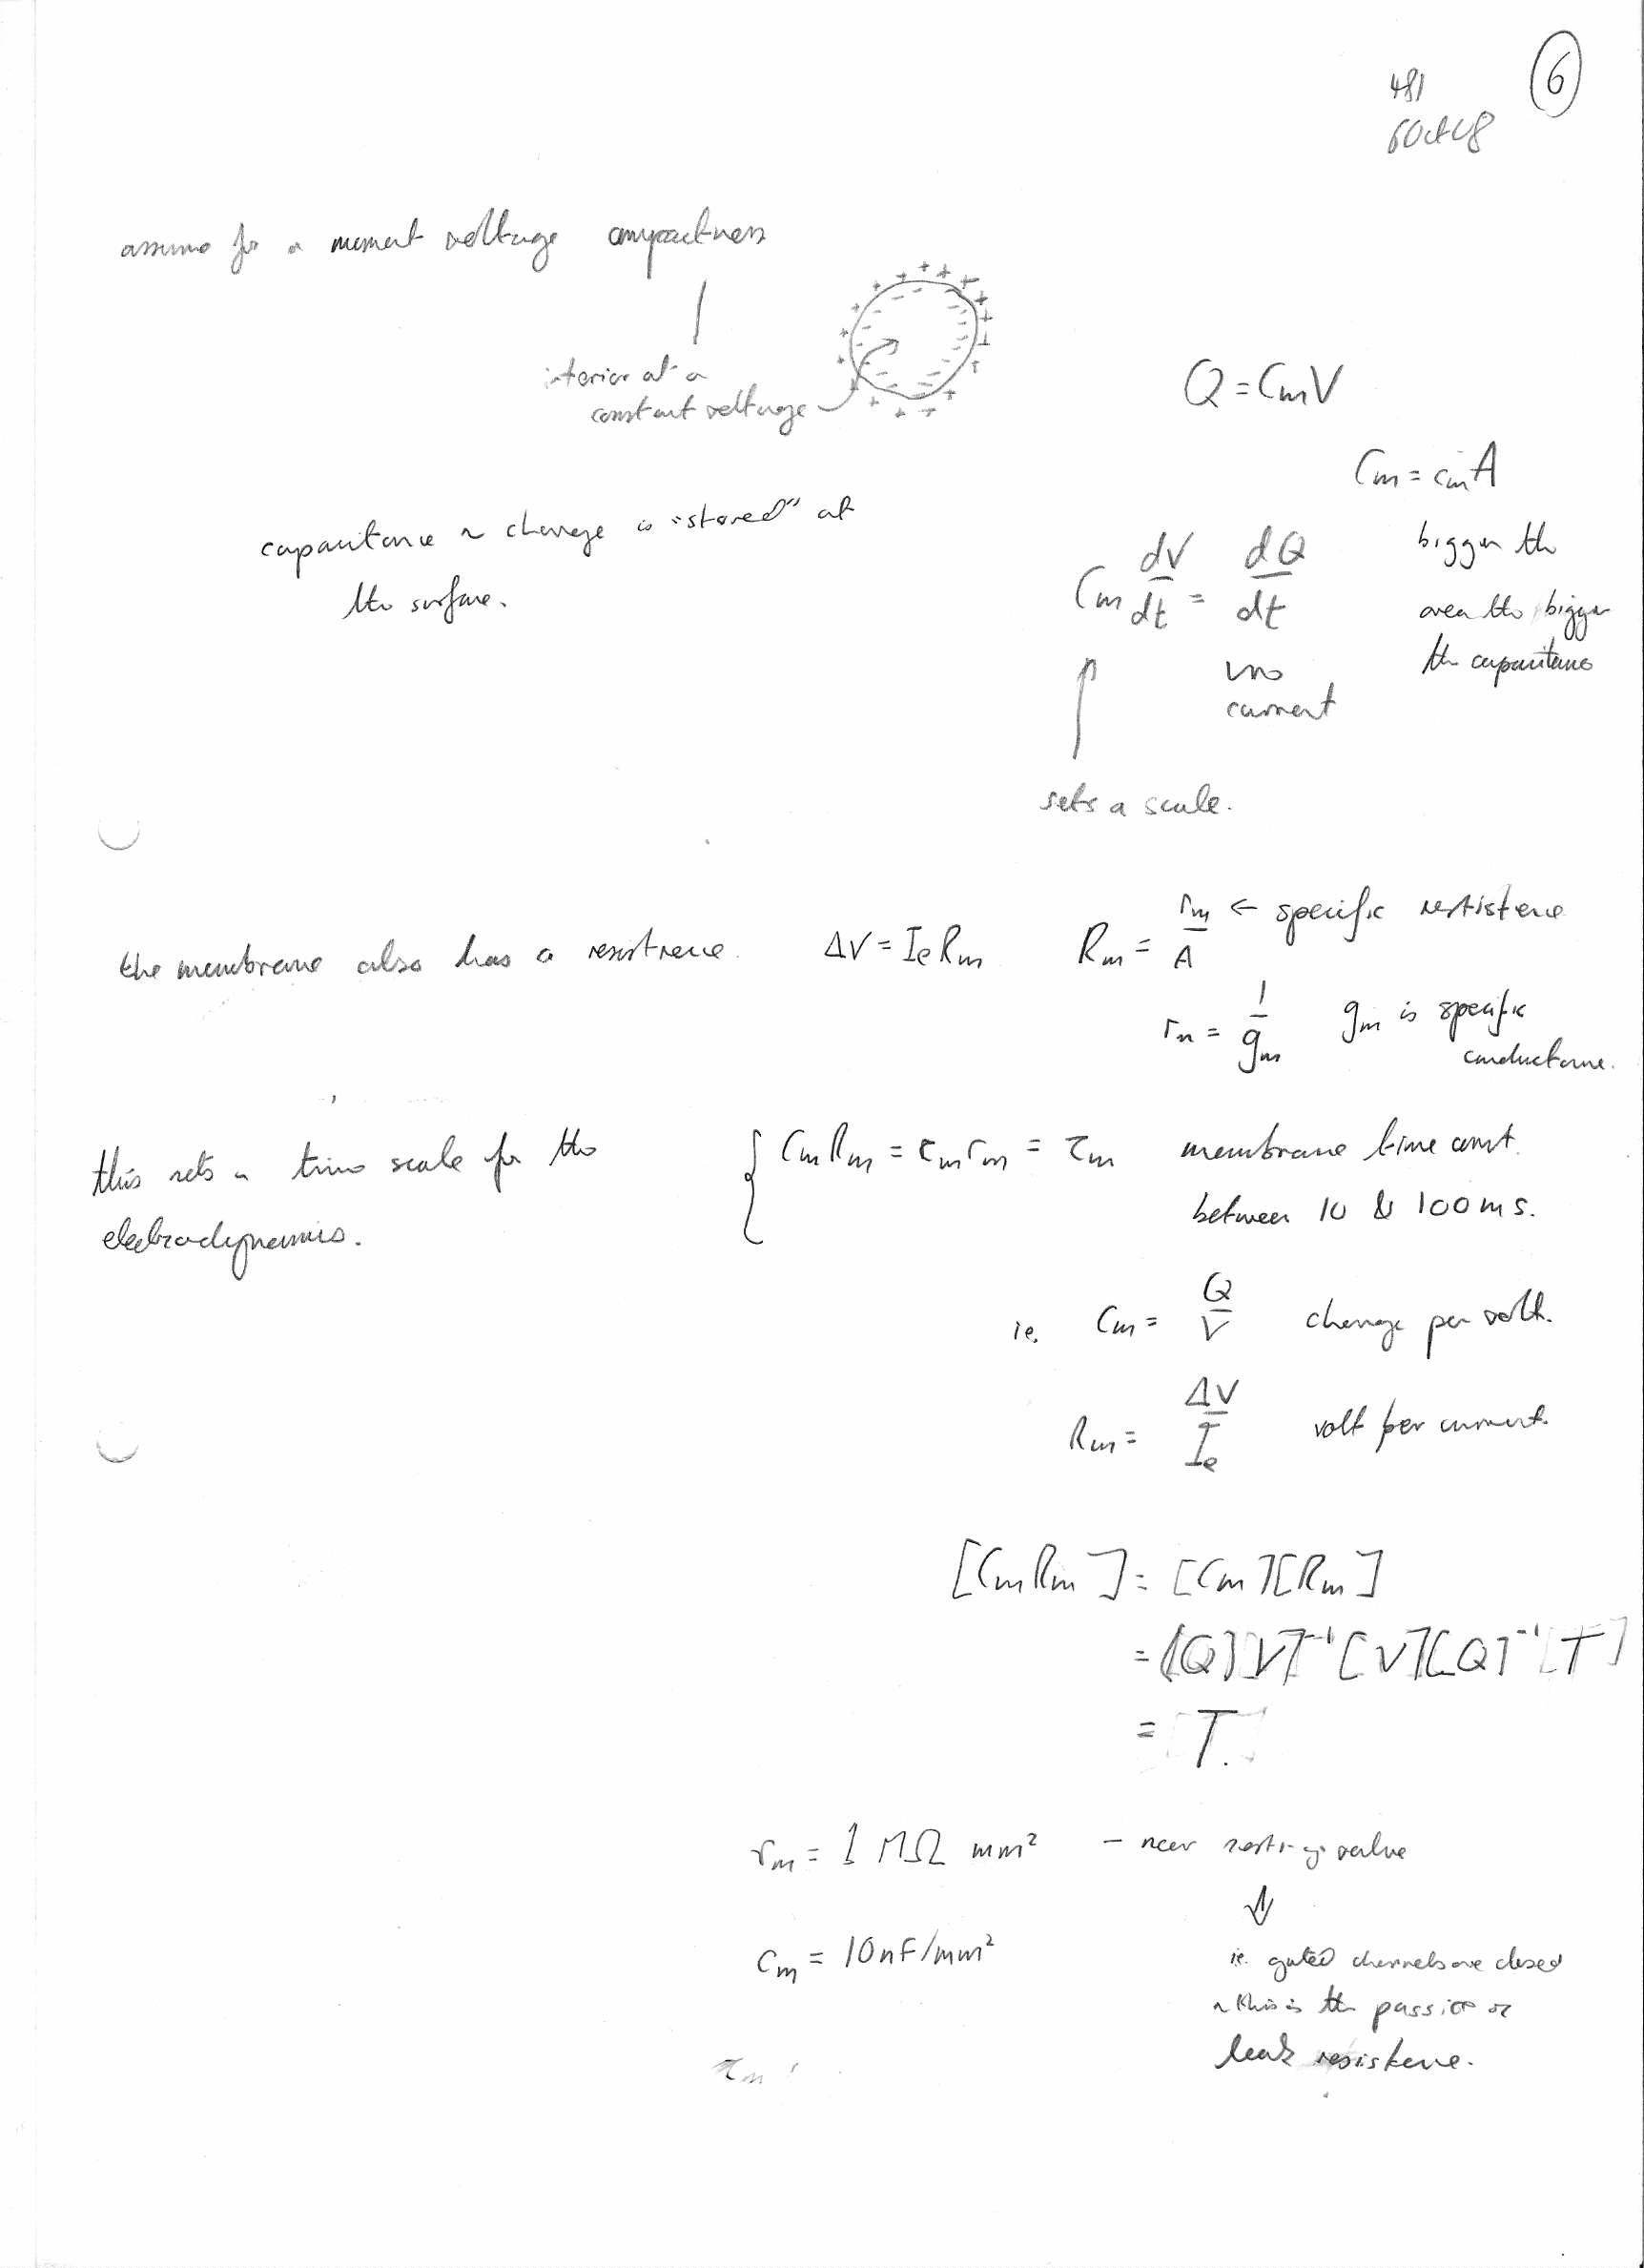 6
481
6 Oct 08
assume for a moment voltage compactness
interior at a
constant voltage
Q = CmV
Cm = cmA
bigger the
area the bigger
the capacitance
capacitance ~ charge is "stored" at
the surface.
Cm dV/dt = dQ/dt
current
sets a scale.
the membrane also has a resistance. ΔV = IeRm Rm = rm/A ← specific restistence
rm = 1/gm gm is specific
conductance.
this sets a time scale for the
electrodynamics.
{ CmRm = cmrm = τm membrane time const.
between 10 & 100ms.
ie. Cm = Q/V charge per volt.
Rm = ΔV/Ie volt per current.
[CmRm] = [Cm][Rm]
= [Q][V]⁻¹[V][Q]⁻¹[T]
= [T].
rm = 1 MΩ mm² – near resting value
⇓
cm = 10nF/mm²
ie. gated channels are closed
~ this is the passive or
leak resistence.
τm